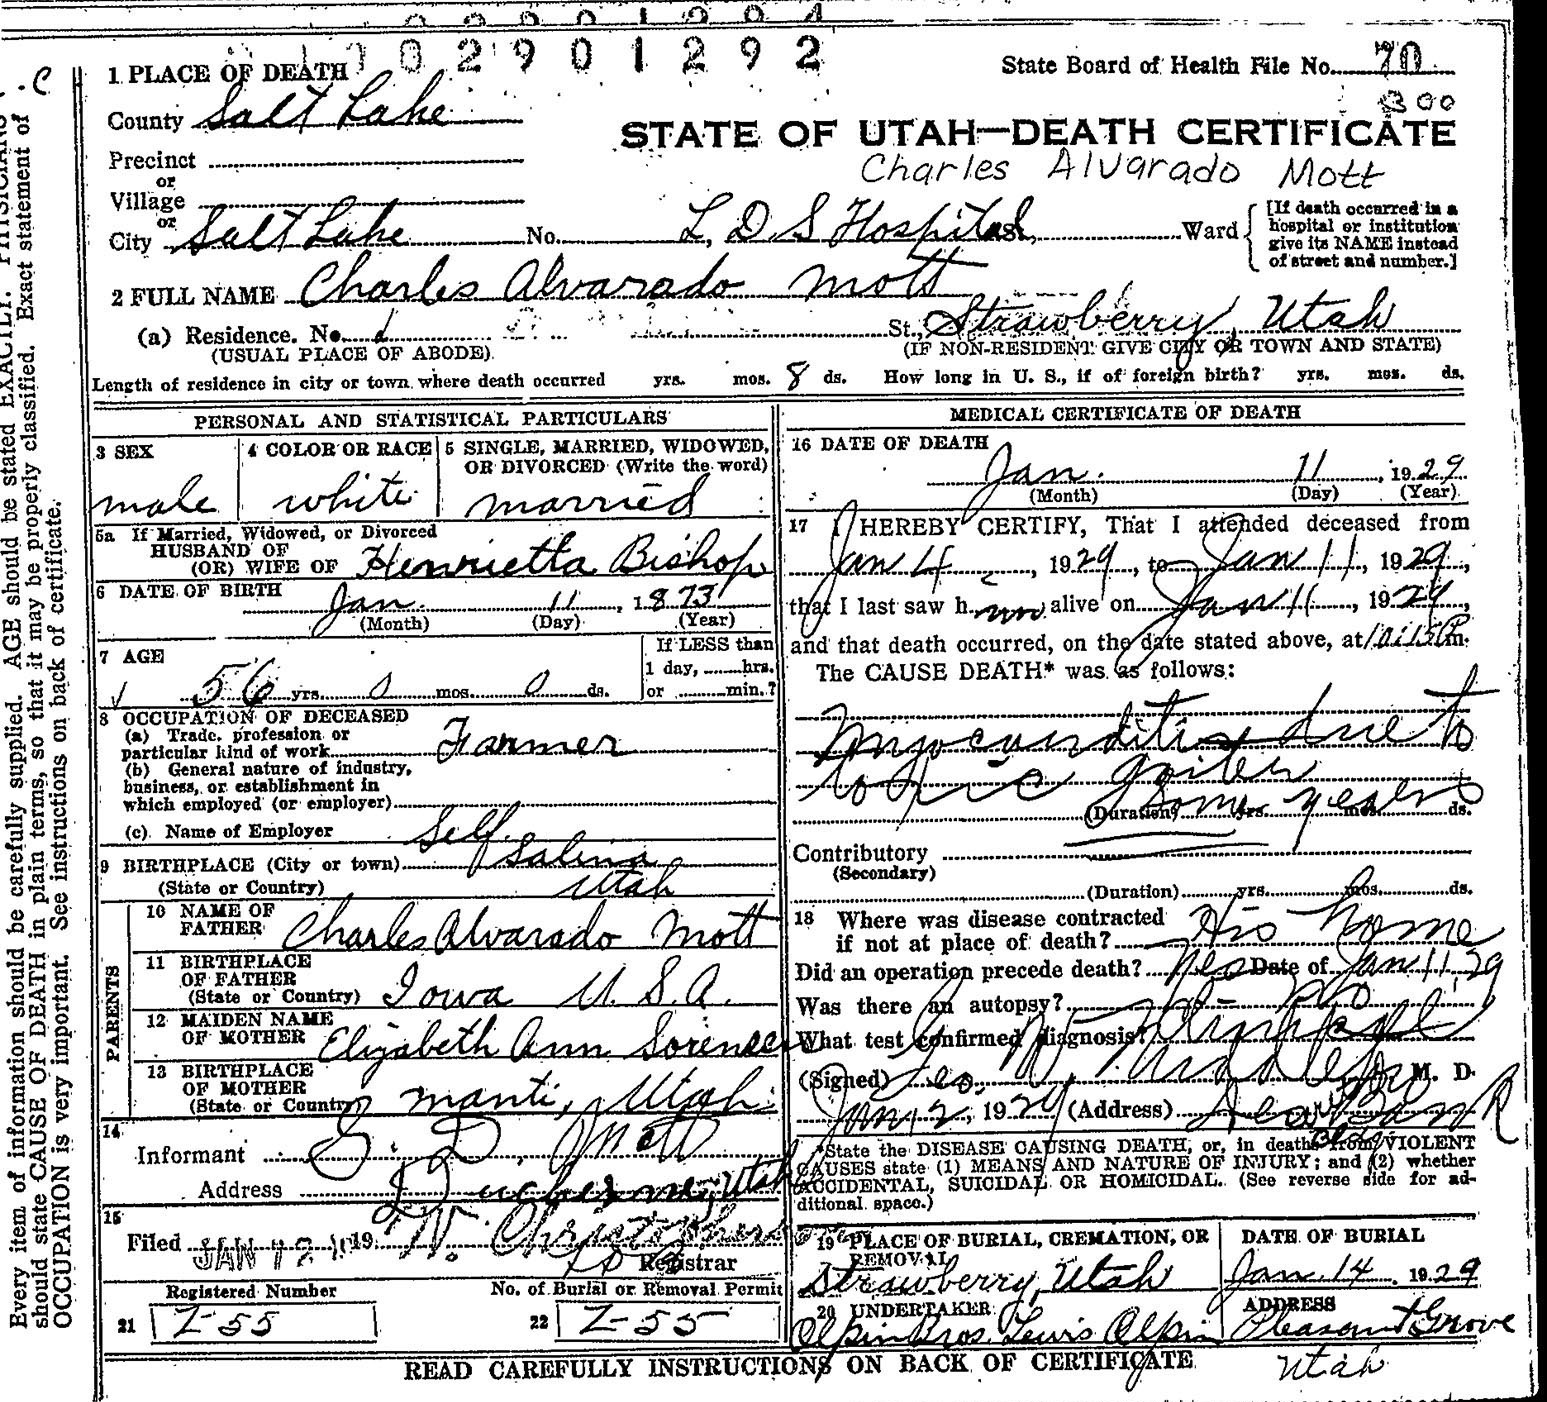 02901292
1 PLACE OF DEATH
State Board of Health File No. 70
300
County Salt Lake
STATE OF UTAH—DEATH CERTIFICATE
Precinct
Charles Alvarado Mott
or
Village
or
City Salt Lake No. L. D S Hospital St., Ward
[If death occurred in a
hospital or institution
give its NAME instead
of street and number.]
2 FULL NAME Charles Alvarado Mott
(a) Residence. No. St., Strawberry, Utah
(USUAL PLACE OF ABODE) (IF NON-RESIDENT GIVE CITY OR TOWN AND STATE)
Length of residence in city or town where death occurred yrs. mos. 8 ds. How long in U. S., if of foreign birth? yrs. mos. ds.
PERSONAL AND STATISTICAL PARTICULARS
3 SEX
male
4 COLOR OR RACE
white
5 SINGLE, MARRIED, WIDOWED,
OR DIVORCED (Write the word)
married
5a If Married, Widowed, or Divorced
HUSBAND OF
(OR) WIFE OF Henrietta Bishop
6 DATE OF BIRTH Jan. 11, 1873
(Month) (Day) (Year)
7 AGE
56 yrs. 0 mos. 0 ds.
If LESS than
1 day, hrs.
or min.?
8 OCCUPATION OF DECEASED
(a) Trade, profession or
particular kind of work Farmer
(b) General nature of industry,
business, or establishment in
which employed (or employer)
(c) Name of Employer Self
9 BIRTHPLACE (City or town) Salina
(State or Country) Utah
PARENTS
10 NAME OF
FATHER Charles Alvarado Mott
11 BIRTHPLACE
OF FATHER
(State or Country) Iowa U. S. A.
12 MAIDEN NAME
OF MOTHER Elizabeth Ann Sorensen
13 BIRTHPLACE
OF MOTHER
(State or Country) Manti, Utah
14
Informant S. D. Mott
Address Duchesne, Utah
15
Filed JAN 12 19 W. Christopherson
Registrar
Registered Number
21 Z-55
No. of Burial or Removal Permit
22 Z-55
MEDICAL CERTIFICATE OF DEATH
16 DATE OF DEATH
Jan. 11, 1929
(Month) (Day) (Year)
17 I HEREBY CERTIFY, That I attended deceased from
Jan 4, 1929, to Jan 11, 1929,
that I last saw h im alive on Jan 11, 1929,
and that death occurred, on the date stated above, at 10:15 P m.
The CAUSE DEATH* was as follows:
Myocarditis due to
toxic goiter
(Duration) Some yrs. years mos. ds.
Contributory
(Secondary)
(Duration) yrs. mos. ds.
18 Where was disease contracted
if not at place of death? His home
Did an operation precede death? Yes Date of Jan 11, 29
Was there an autopsy? No
What test confirmed diagnosis? Clinical
(Signed) Geo. W. Middleton M. D.
Jan 12, 1929 (Address) Deseret Bank
Bldg
*State the DISEASE CAUSING DEATH, or, in deaths from VIOLENT
CAUSES state (1) MEANS AND NATURE OF INJURY; and (2) whether
ACCIDENTAL, SUICIDAL OR HOMICIDAL. (See reverse side for ad-
ditional space.)
19 PLACE OF BURIAL, CREMATION, OR
REMOVAL
Strawberry, Utah
DATE OF BURIAL
Jan. 14, 1929
20 UNDERTAKER
Olpin Bros. Lewis Olpin
ADDRESS
Pleasant Grove
Utah
READ CAREFULLY INSTRUCTIONS ON BACK OF CERTIFICATE
Every item of information should be carefully supplied. AGE should be stated EXACTLY. PHYSICIANS
should state CAUSE OF DEATH in plain terms, so that it may be properly classified. Exact statement of
OCCUPATION is very important. See instructions on back of certificate.